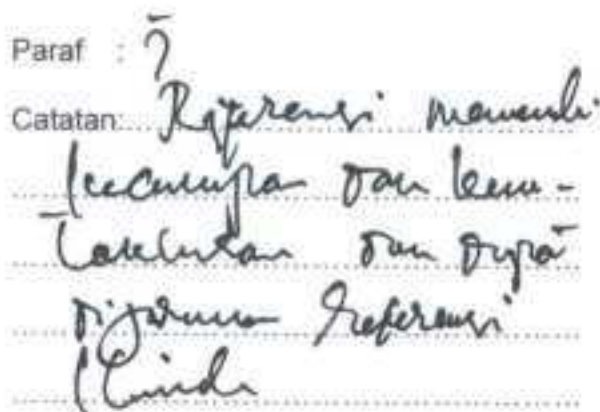 Paraf :
Catatan: Referensi memenuhi
kecukupan dan kemu-
takhiran dan dapat
digunakan Referensi